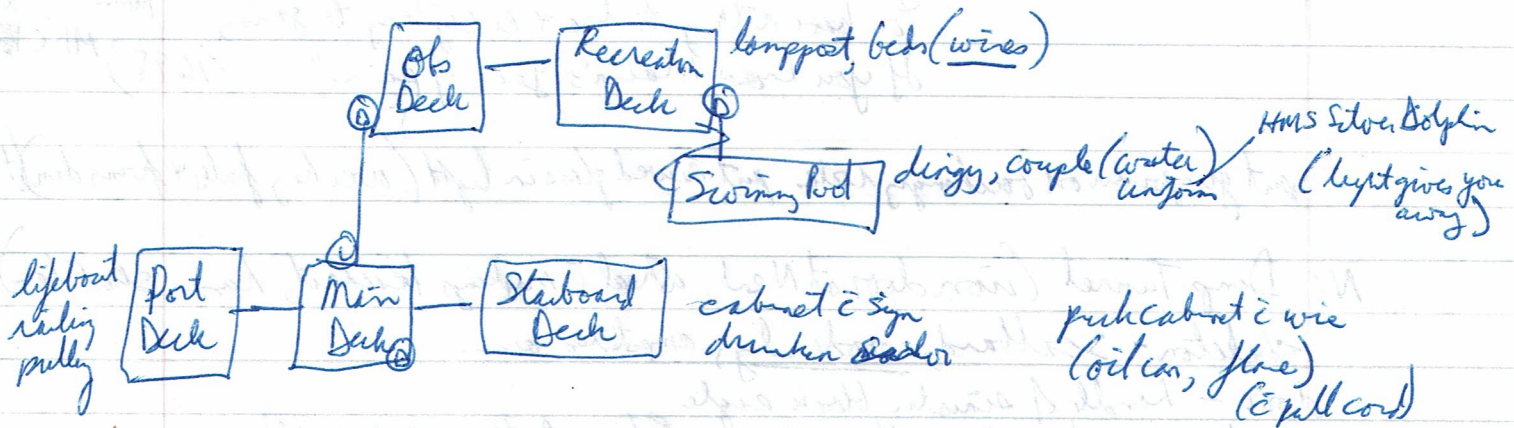 Obs
Deck
D
Recreation
Deck
D
lamppost, beds (wires)
Swimming Pool
dingy, couple (water
uniform)
HMS Silver Dolphin
(light gives you
away)
lifeboat
railing
pulley
Port
Deck
U
Main
Deck
D
Starboard
Deck
cabinet c̄ sign
drunken sailor
pick cabinet c̄ wire
(oil can, flare)
(c̄ pull cord)